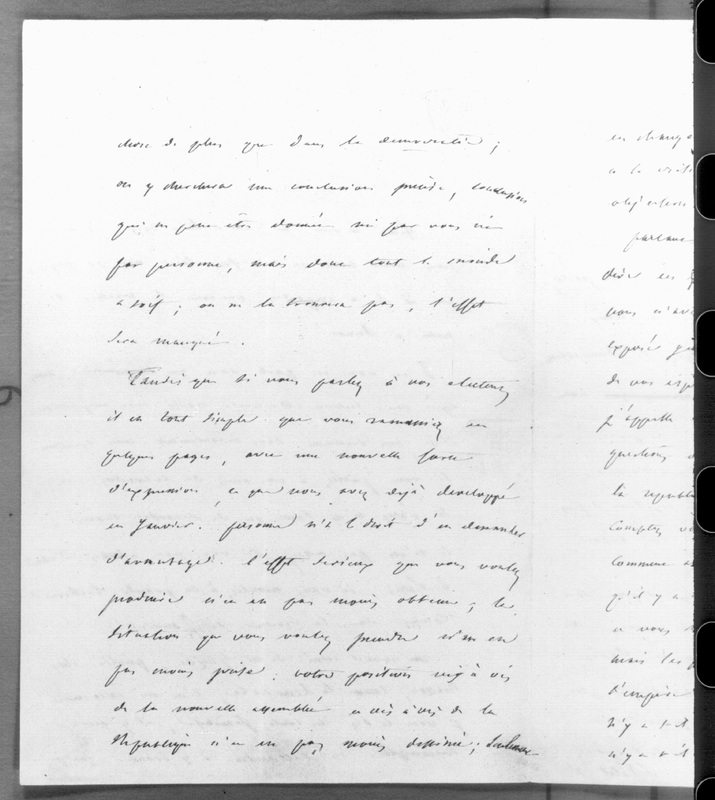 chose de plus que dans la démocratie ;
on y cherchera une conclusion précise, conclusion
qui ne peut être donnée ni par vous ni
par personne, mais dont tout le monde
a soif ; on ne la trouvera pas, l'effet
sera manqué.
Tandis que si vous parlez à vos électeurs
il est tout simple que vous ramassiez en
quelques pages, avec une nouvelle force
d'expression, ce que vous avez déjà développé
en Janvier. personne n'a le droit d'en demander
d'avantage. l'effet sérieux que vous voulez
produire n'en est pas moins obtenu ; la
situation que vous voulez prendre n'en est
pas moins prise ; votre position vis à vis
de la nouvelle assemblée et vis à vis de la
République n'en est pas moins dessinée ; seulement
en
a la
objections
partout
vous n'avez
exposé
de vos
j'appelle
questions
la republi
comptez
comme
qu'il y a
a vous
mais les
d'empire
n'y a t-il
n'y a t-il